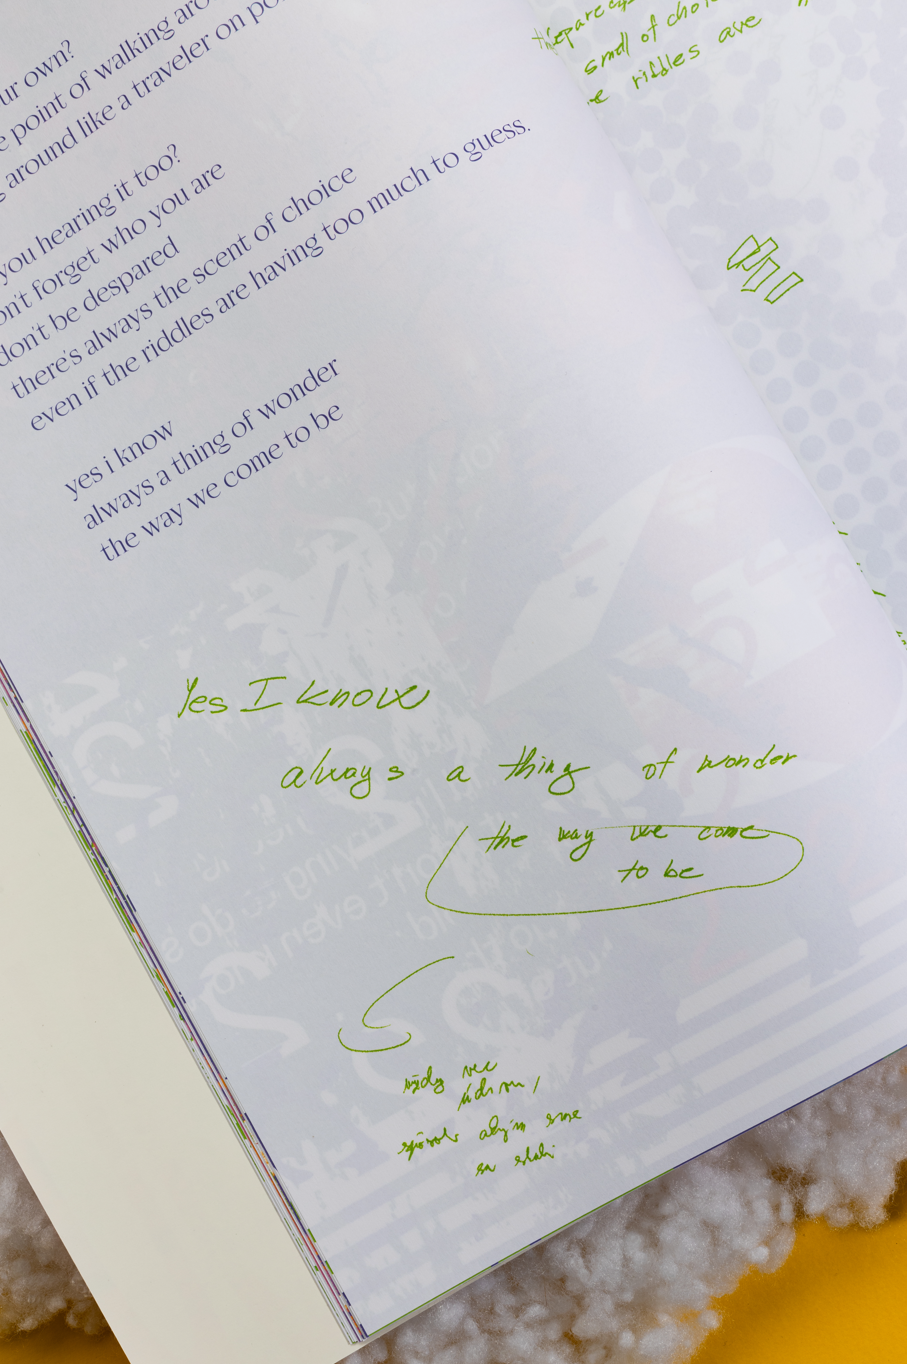 ur own?
e point of walking aro
around like a traveler on po
you hearing it too?
on't forget who you are
don't be despared
there's always the scent of choice
even if the riddles are having too much to guess.
yes i know
always a thing of wonder
the way we come to be
smell of cho
e riddles are
Yes I know
always a thing of wonder
the way we come
to be
vždy vec
údivu,
spôsob akým sme
sa stali